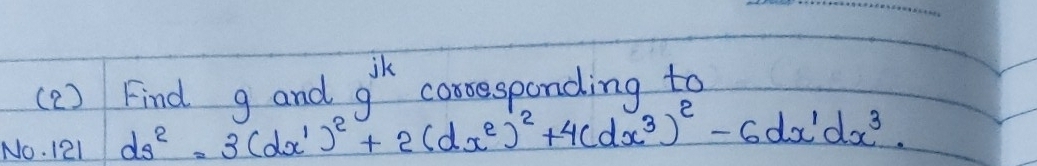 (2) Find g and g^jk corresponding to
No. 121 ds² = 3(dx¹)² + 2(dx²)² + 4(dx³)² - 6dx¹dx³.